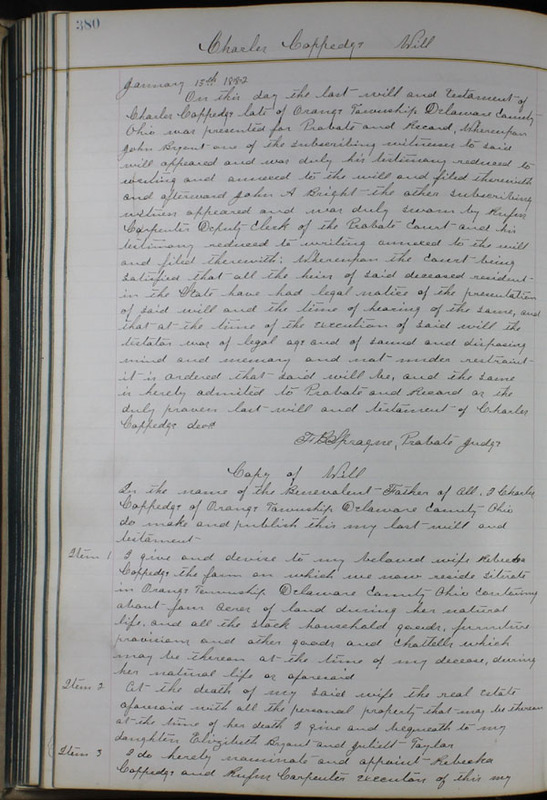 380
Charles Coppedge Will
January 15th 1882
On this day the last will and testament of
Charles Coppedge late of Orange Township Delaware County
Ohio was presented for Probate and Record, Whereupon
John Bryant one of the subscribing witnesses to said
will appeared and was duly his testimony reduced to
writing and annexed to the will and filed therewith
and afterward John A Bright the other subscribing
witness appeared and was duly sworn by Rufus
Carpenter Deputy Clerk of the Probate Court and his
testimony reduced to writing annexed to the will
and filed therewith: Whereupon the Court being
satisfied that all the heirs of said deceased resident
in the State have had legal notice of the presentation
of said will and the time of hearing of the same, and
that at the time of the execution of said will the
testator was of legal age and of sound and disposing
mind and memory and not under restraint
it is ordered that said will be, and the same
is hereby admitted to Probate and Record as the
duly proven last will and testament of Charles
Coppedge decd
F. B. Sprague, Probate Judge
Copy of Will
In the name of the Benevolent Father of All. I Charles
Coppedge of Orange Township Delaware County Ohio
do make and publish this my last will and
testament
Item 1 I give and devise to my beloved wife Rebecka
Coppedge the farm on which we now reside situate
in Orange Township Delaware County Ohio containing
about four Acres of land during her natural
life, and all the stock household goods, furniture
provisions and other goods and chattells which
may be thereon at the time of my decease, during
her natural life as aforesaid
Item 2 At the death of my said wife the real estate
aforesaid with all the personal property that may be thereon
at the time of her death I give and bequeath to my
daughters Elizibeth Bryant and Juliett Taylor
Item 3 I do hereby nominate and appoint Rebecka
Coppedge and Rufus Carpenter executors of this my